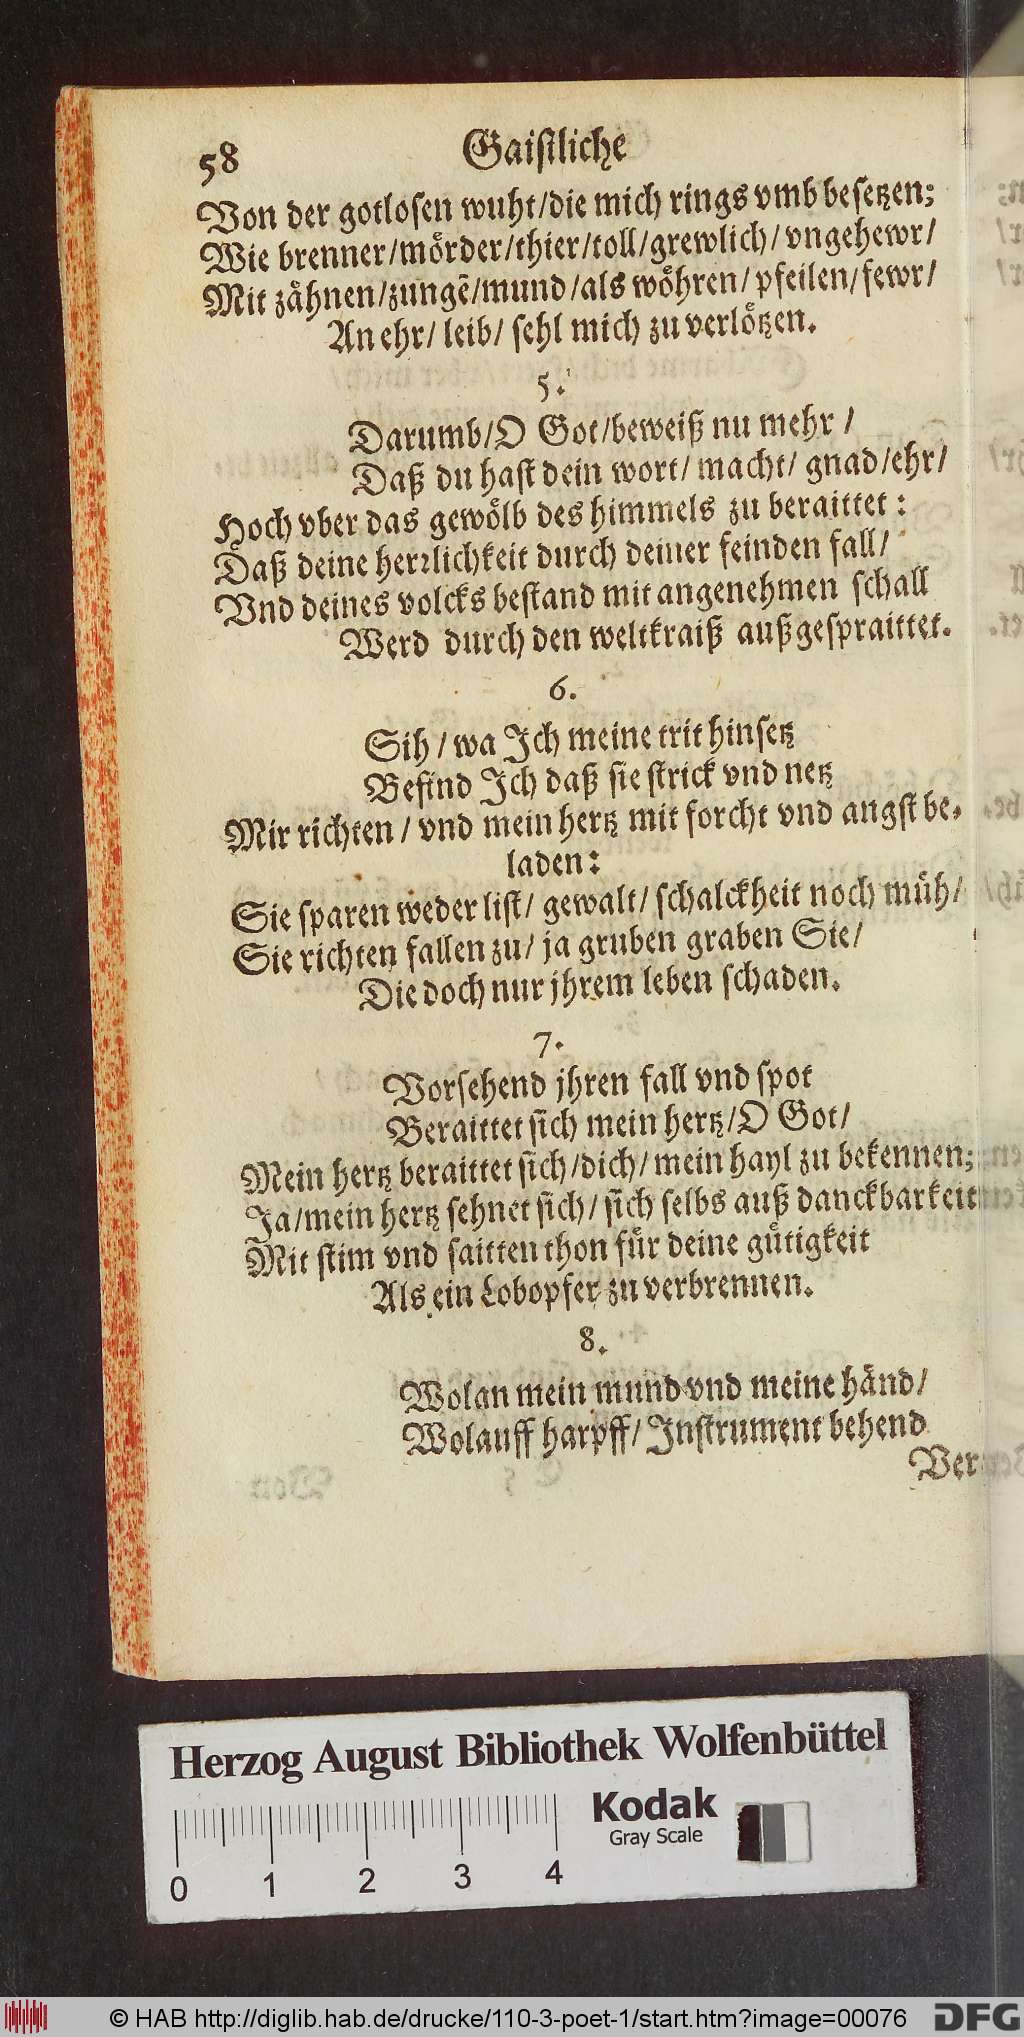 58
Gaistliche
Von der gotlosen wuht/die mich rings vmb besetzen;
Wie brenner/mörder/thier/toll/grewlich/vngehewr/
Mit zähnen/zungẽ/mund/als wöhren/pfeilen/fewr/
An ehr/ leib/ sehl mich zu verlötzen.
5.
Darumb/O Got/beweiß nu mehr /
Daß du hast dein wort/ macht/ gnad/ehr/
Hoch vber das gewölb des himmels zu beraittet :
Daß deine herꝛlichkeit durch deiner feinden fall/
Vnd deines volcks bestand mit angenehmen schall
Werd durch den weltkraiß außgespraittet.
6.
Sih / wa Ich meine trit hinsetz
Befind Ich daß sie strick vnd netz
Mir richten / vnd mein hertz mit forcht vnd angst be-
laden:
Sie sparen weder list/ gewalt/ schalckheit noch müh/
Sie richten fallen zu/ ja gruben graben Sie/
Die doch nur jhrem leben schaden.
7.
Vorsehend jhren fall vnd spot
Beraittet sich mein hertz/O Got/
Mein hertz beraittet sich/dich/mein hayl zu bekennen;
Ja/mein hertz sehnet sich/ sich selbs auß danckbarkeit
Mit stim vnd saitten thon für deine gütigkeit
Als ein Lobopfer zu verbrennen.
8.
Wolan mein mund vnd meine händ/
Wolauff harpff/ Instrument behend
Ver
Herzog August Bibliothek Wolfenbüttel
Kodak
Gray Scale
0 1 2 3 4
© HAB http://diglib.hab.de/drucke/110-3-poet-1/start.htm?image=00076
DFG